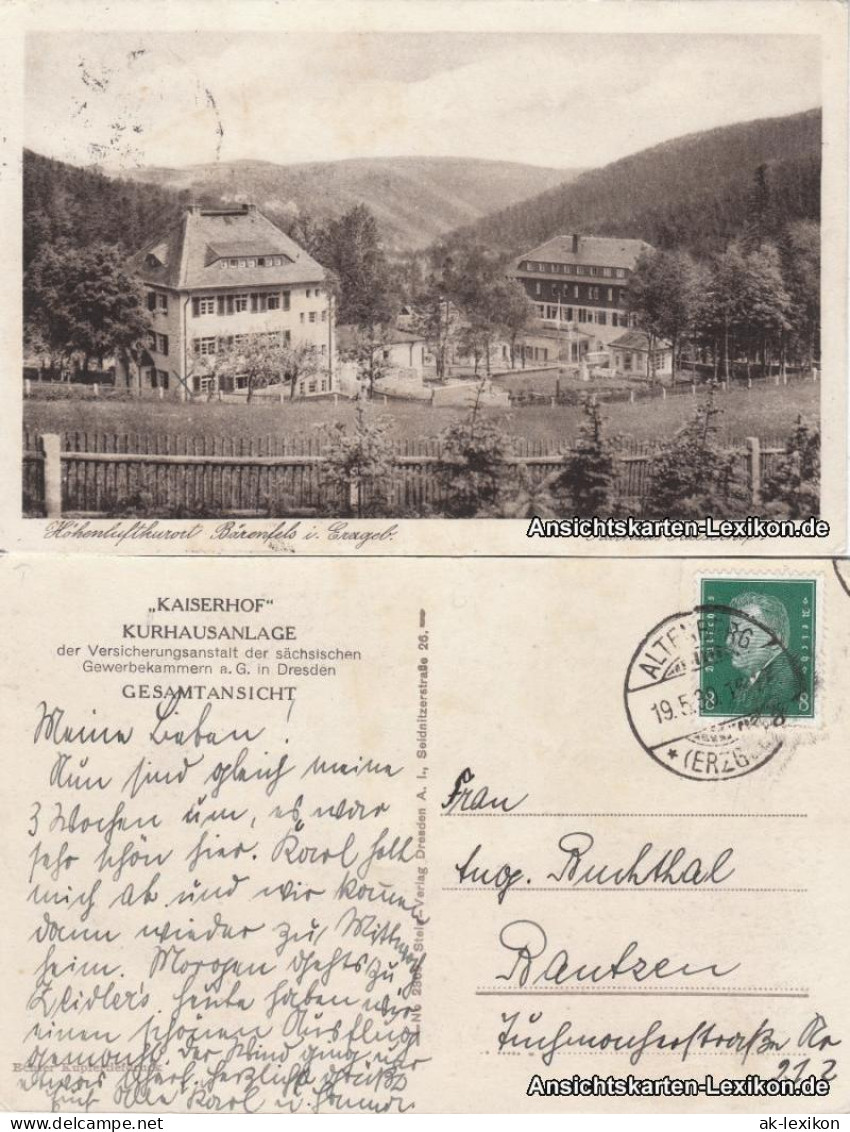 Höhenluftkurort Bärenfels i. Erzgeb.
Ansichtskarten-Lexikon.de
„KAISERHOF“
KURHAUSANLAGE
der Versicherungsanstalt der sächsischen
Gewerbekammern a. G. in Dresden
GESAMTANSICHT
Meine Lieben!
Nun sind gleich meine
3 Wochen um, es war
sehr schön hier. Karl holt
mich ab und wir kommen
dann wieder zu Mittwoch
heim. Morgen gehts zu
Zeidler's heute haben wir
einen schönen Ausflug
gemacht. der Wind ging nur
etwas scharf. herzliche Grüße
Euch Allen Karl u.
Echter Kupfertiefdruck
Verlag Dresden A. 1., Seidnitzerstraße 26.
Deutsches Reich
8 8
ALTENBERG
19.5.30
* (ERZG
Frau
Aug. Buchthal
Bautzen
Tuchmacherstraße Nr
Ansichtskarten-Lexikon.de
ak-lexikon